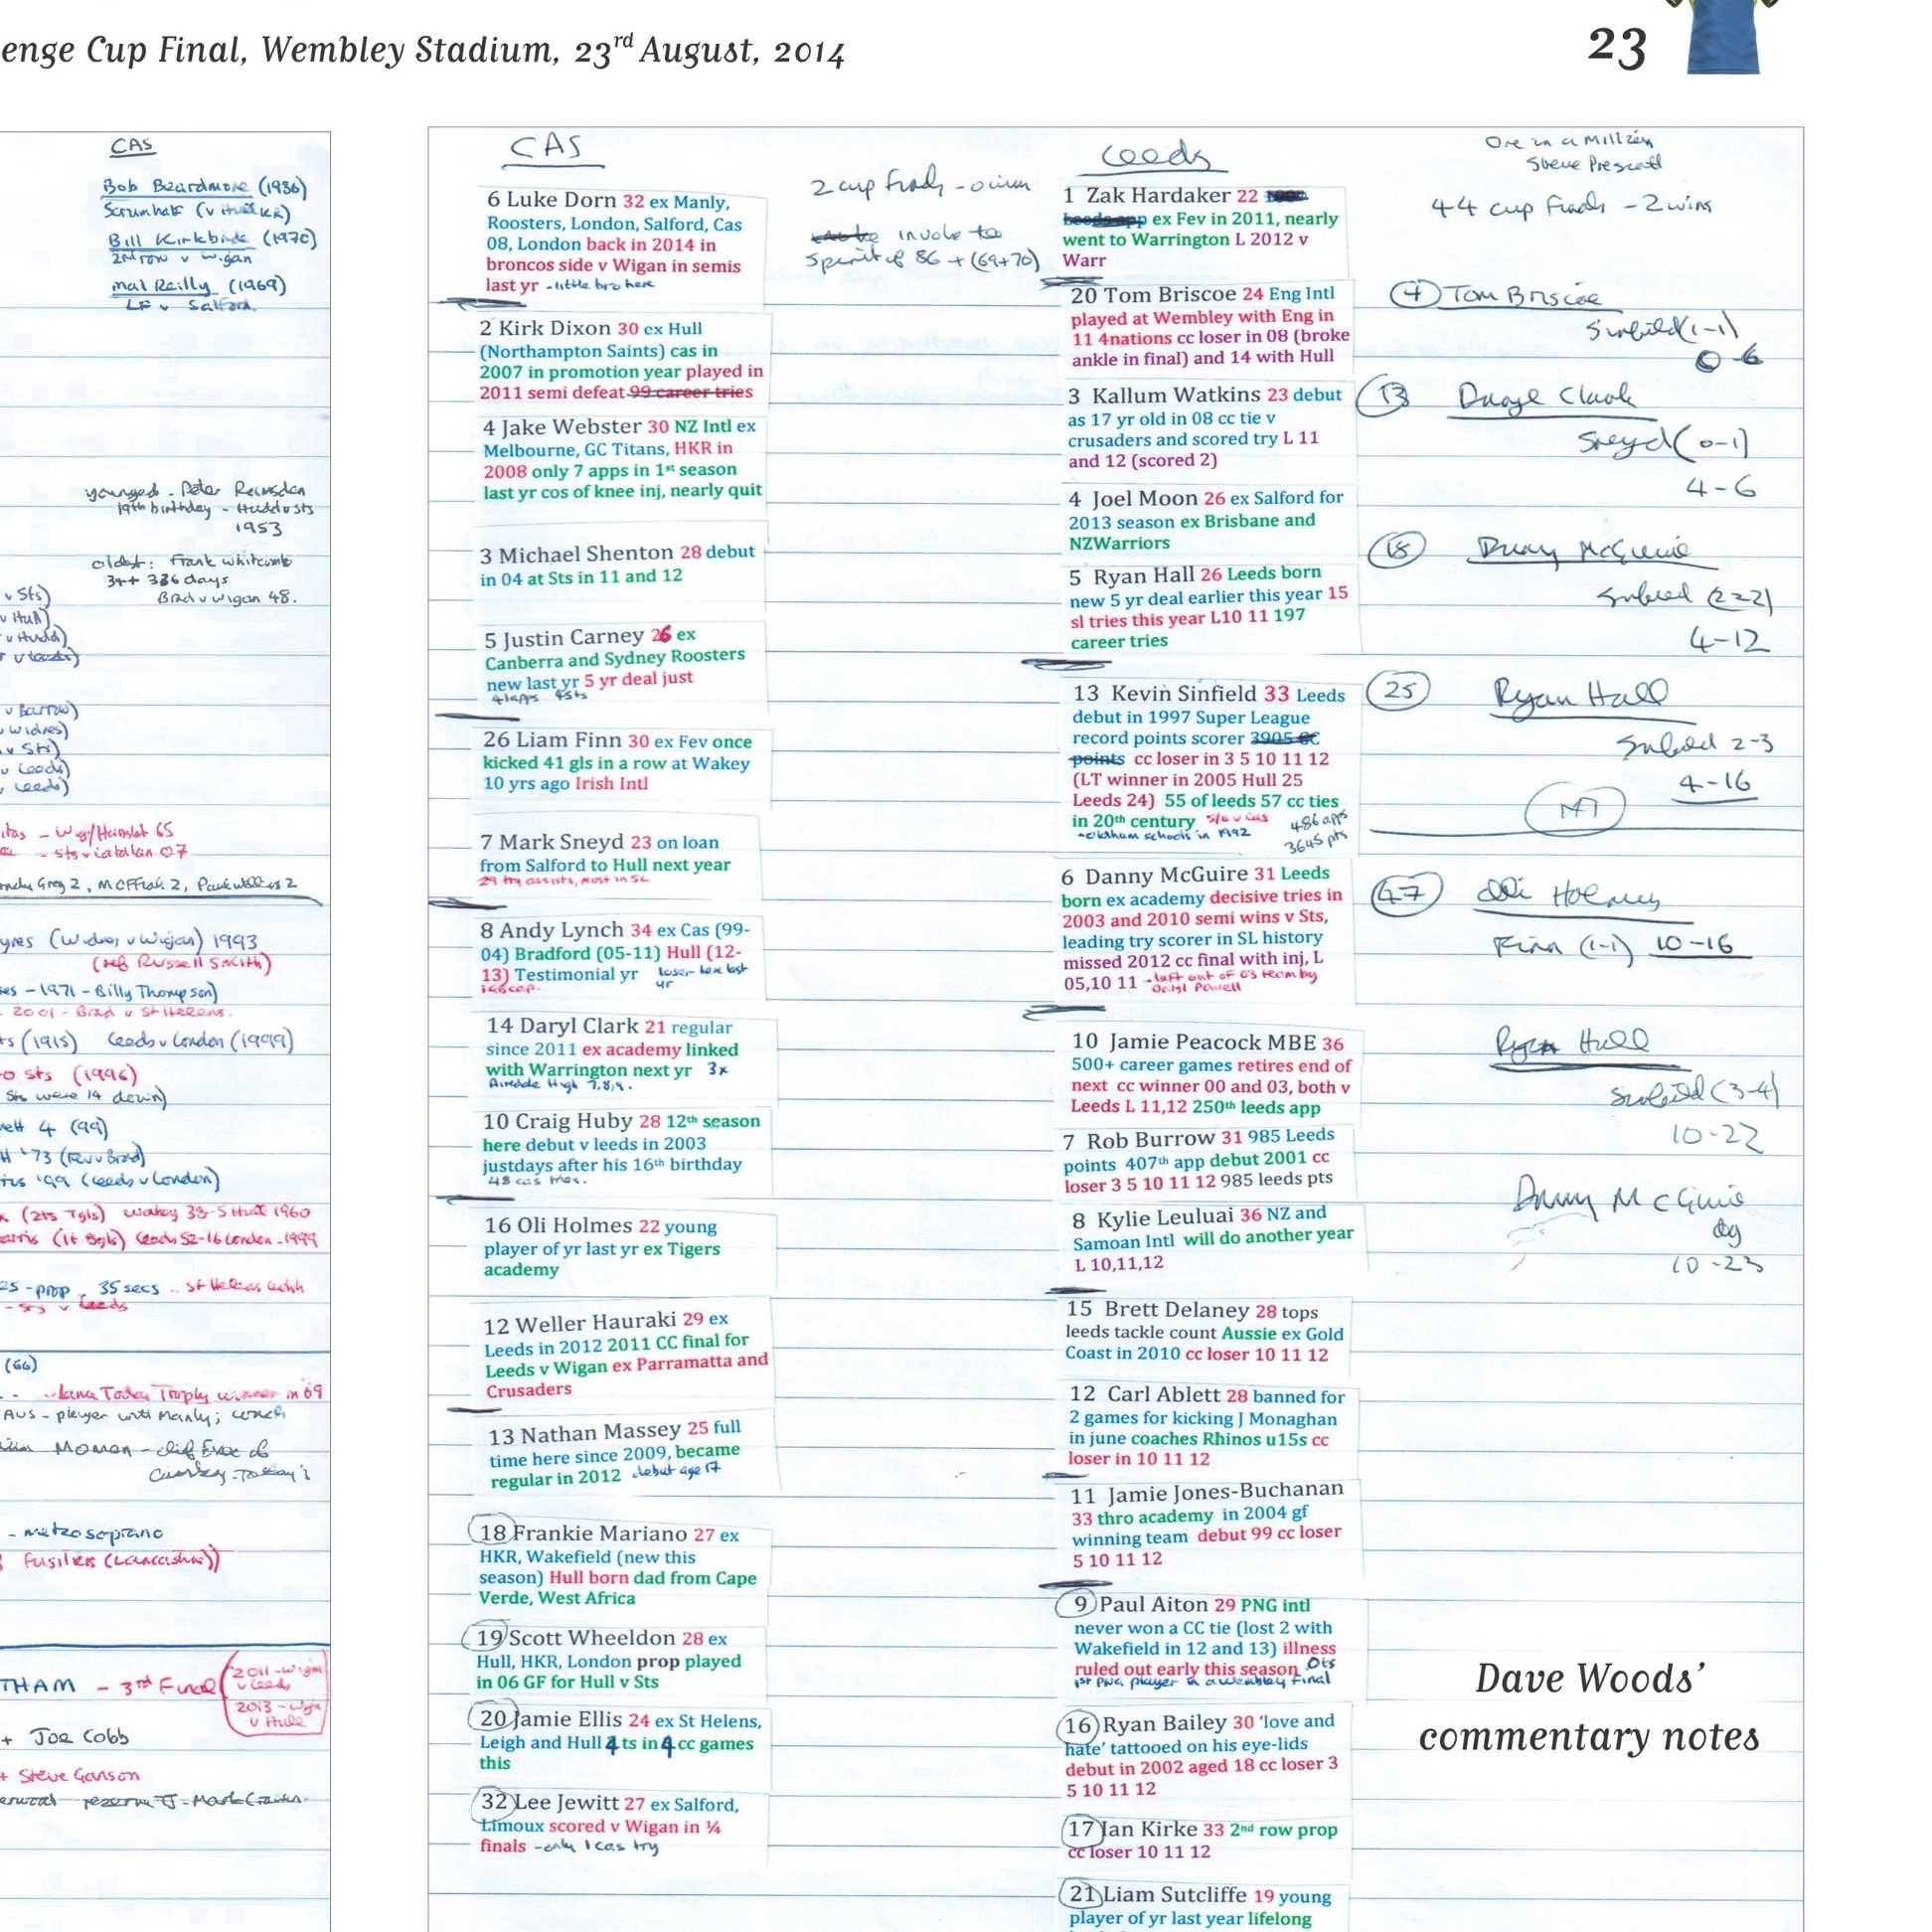 enge Cup Final, Wembley Stadium, 23rd August, 2014
23
CAS
Bob Beardmore (1986)
Scrumhalf (v Hull KR)
Bill Kirkbride (1970)
2nd row v Wigan
Mal Reilly (1969)
LF v Salford.
youngest - Peter Ramsden
19th birthday - Hudd v Sts
1953
oldest: Frank Whitcombe
34 + 336 days
Brad v Wigan 48.
v Sts)
v Hull)
v Hudd)
v Leeds)
v Barrow)
v Widnes)
v Sts)
v Leeds)
v Leeds)
- Wig/Hunslet 65
- Sts v Catalan 07
Grog 2, M Offiah 2, Paul Wellens 2
(Widnes v Wigan) 1993
(ref Russell Smith)
- 1971 - Billy Thompson)
2001 - Brad v St Helens.
(1915) Leeds v London (1999)
Sts (1996)
Sts were 14 down)
4 (99)
'73 (Fev v Brad)
'99 (Leeds v London)
(2ts 7gls) Wakey 38-5 Hull 1960
(1t 8gls) Leeds 52-16 London - 1999
- prop, 35 secs .. St Helens
- Sts v Leeds
(66)
Lance Todd Trophy winner in 69
Aus - player with Manly; coach
- mezzo soprano
Fusiliers (Lancashire))
THAM - 3rd Final
2011 - Wigan
v Leeds
2013 - Wigan
v Hull
+ Joe Cobb
+ Steve Ganson
CAS
6 Luke Dorn 32 ex Manly,
Roosters, London, Salford, Cas
08, London back in 2014 in
broncos side v Wigan in semis
last yr - little bro here
2 Kirk Dixon 30 ex Hull
(Northampton Saints) cas in
2007 in promotion year played in
2011 semi defeat 99 career tries
4 Jake Webster 30 NZ Intl ex
Melbourne, GC Titans, HKR in
2008 only 7 apps in 1st season
last yr cos of knee inj, nearly quit
3 Michael Shenton 28 debut
in 04 at Sts in 11 and 12
5 Justin Carney 26 ex
Canberra and Sydney Roosters
new last yr 5 yr deal just
41 apps
26 Liam Finn 30 ex Fev once
kicked 41 gls in a row at Wakey
10 yrs ago Irish Intl
7 Mark Sneyd 23 on loan
from Salford to Hull next year
29 try assists, most in SL
8 Andy Lynch 34 ex Cas (99-
04) Bradford (05-11) Hull (12-
13) Testimonial yr loser here last
yr
14 Daryl Clark 21 regular
since 2011 ex academy linked
with Warrington next yr 3x
Airedale High 7,8,9.
10 Craig Huby 28 12th season
here debut v leeds in 2003
justdays after his 16th birthday
48 cas tries.
16 Oli Holmes 22 young
player of yr last yr ex Tigers
academy
12 Weller Hauraki 29 ex
Leeds in 2012 2011 CC final for
Leeds v Wigan ex Parramatta and
Crusaders
13 Nathan Massey 25 full
time here since 2009, became
regular in 2012 debut age 17
18 Frankie Mariano 27 ex
HKR, Wakefield (new this
season) Hull born dad from Cape
Verde, West Africa
19 Scott Wheeldon 28 ex
Hull, HKR, London prop played
in 06 GF for Hull v Sts
20 Jamie Ellis 24 ex St Helens,
Leigh and Hull 4 ts in 4 cc games
this
32 Lee Jewitt 27 ex Salford,
Limoux scored v Wigan in ¼
finals - only 1 cas try
2 cup finals - 0 wins
invoke the
spirit of 86 + (69+70)
Leeds
1 Zak Hardaker 22
ex Fev in 2011, nearly
went to Warrington L 2012 v
Warr
20 Tom Briscoe 24 Eng Intl
played at Wembley with Eng in
11 4nations cc loser in 08 (broke
ankle in final) and 14 with Hull
3 Kallum Watkins 23 debut
as 17 yr old in 08 cc tie v
crusaders and scored try L 11
and 12 (scored 2)
4 Joel Moon 26 ex Salford for
2013 season ex Brisbane and
NZWarriors
5 Ryan Hall 26 Leeds born
new 5 yr deal earlier this year 15
sl tries this year L10 11 197
career tries
13 Kevin Sinfield 33 Leeds
debut in 1997 Super League
record points scorer 3905
points cc loser in 3 5 10 11 12
(LT winner in 2005 Hull 25
Leeds 24) 55 of leeds 57 cc ties
in 20th century
- oldham schools in 1992
486 apps
3645 pts
6 Danny McGuire 31 Leeds
born ex academy decisive tries in
2003 and 2010 semi wins v Sts,
leading try scorer in SL history
missed 2012 cc final with inj, L
05,10 11 - left out of 03 team by
Daryl Powell
10 Jamie Peacock MBE 36
500+ career games retires end of
next cc winner 00 and 03, both v
Leeds L 11,12 250th leeds app
7 Rob Burrow 31 985 Leeds
points 407th app debut 2001 cc
loser 3 5 10 11 12 985 leeds pts
8 Kylie Leuluai 36 NZ and
Samoan Intl will do another year
L 10,11,12
15 Brett Delaney 28 tops
leeds tackle count Aussie ex Gold
Coast in 2010 cc loser 10 11 12
12 Carl Ablett 28 banned for
2 games for kicking J Monaghan
in june coaches Rhinos u15s cc
loser in 10 11 12
11 Jamie Jones-Buchanan
33 thro academy in 2004 gf
winning team debut 99 cc loser
5 10 11 12
9 Paul Aiton 29 PNG intl
never won a CC tie (lost 2 with
Wakefield in 12 and 13) illness
ruled out early this season 0ts
1st PNG player in a wembley final
16 Ryan Bailey 30 'love and
hate' tattooed on his eye-lids
debut in 2002 aged 18 cc loser 3
5 10 11 12
17 Ian Kirke 33 2nd row prop
cc loser 10 11 12
21 Liam Sutcliffe 19 young
player of yr last year lifelong
One in a Million
Steve Prescott
44 cup finals - 2 wins
4 Tom Briscoe
Sinfield (1-1)
0-6
13 Daryl Clark
Sneyd (0-1)
4-6
18 Danny McGuire
Sinfield (2-2)
4-12
25 Ryan Hall
Sinfield 2-3
4-16
HT
47 Oli Holmes
Finn (1-1) 10-16
Ryan Hall
Sinfield (3-4)
10-22
Danny McGuire
dg
10-23
Dave Woods'
commentary notes